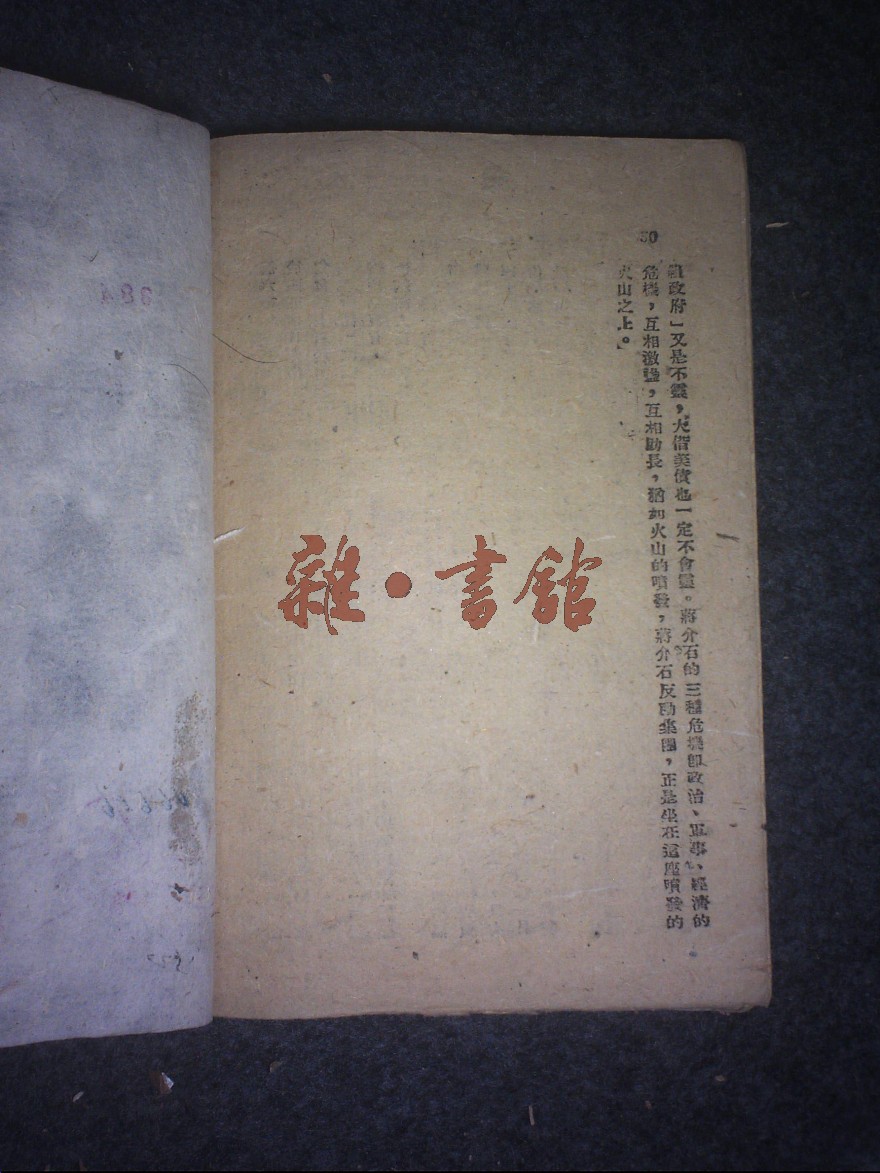 50
組政府」又是不靈，大借美債也一定不會靈。蔣介石的三種危機即政治、軍事、經濟的
危機，互相激盪，互相助長，猶如火山的噴發，蔣介石反動集團，正是坐在這座噴發的
火山之上。」
雜·書館
384